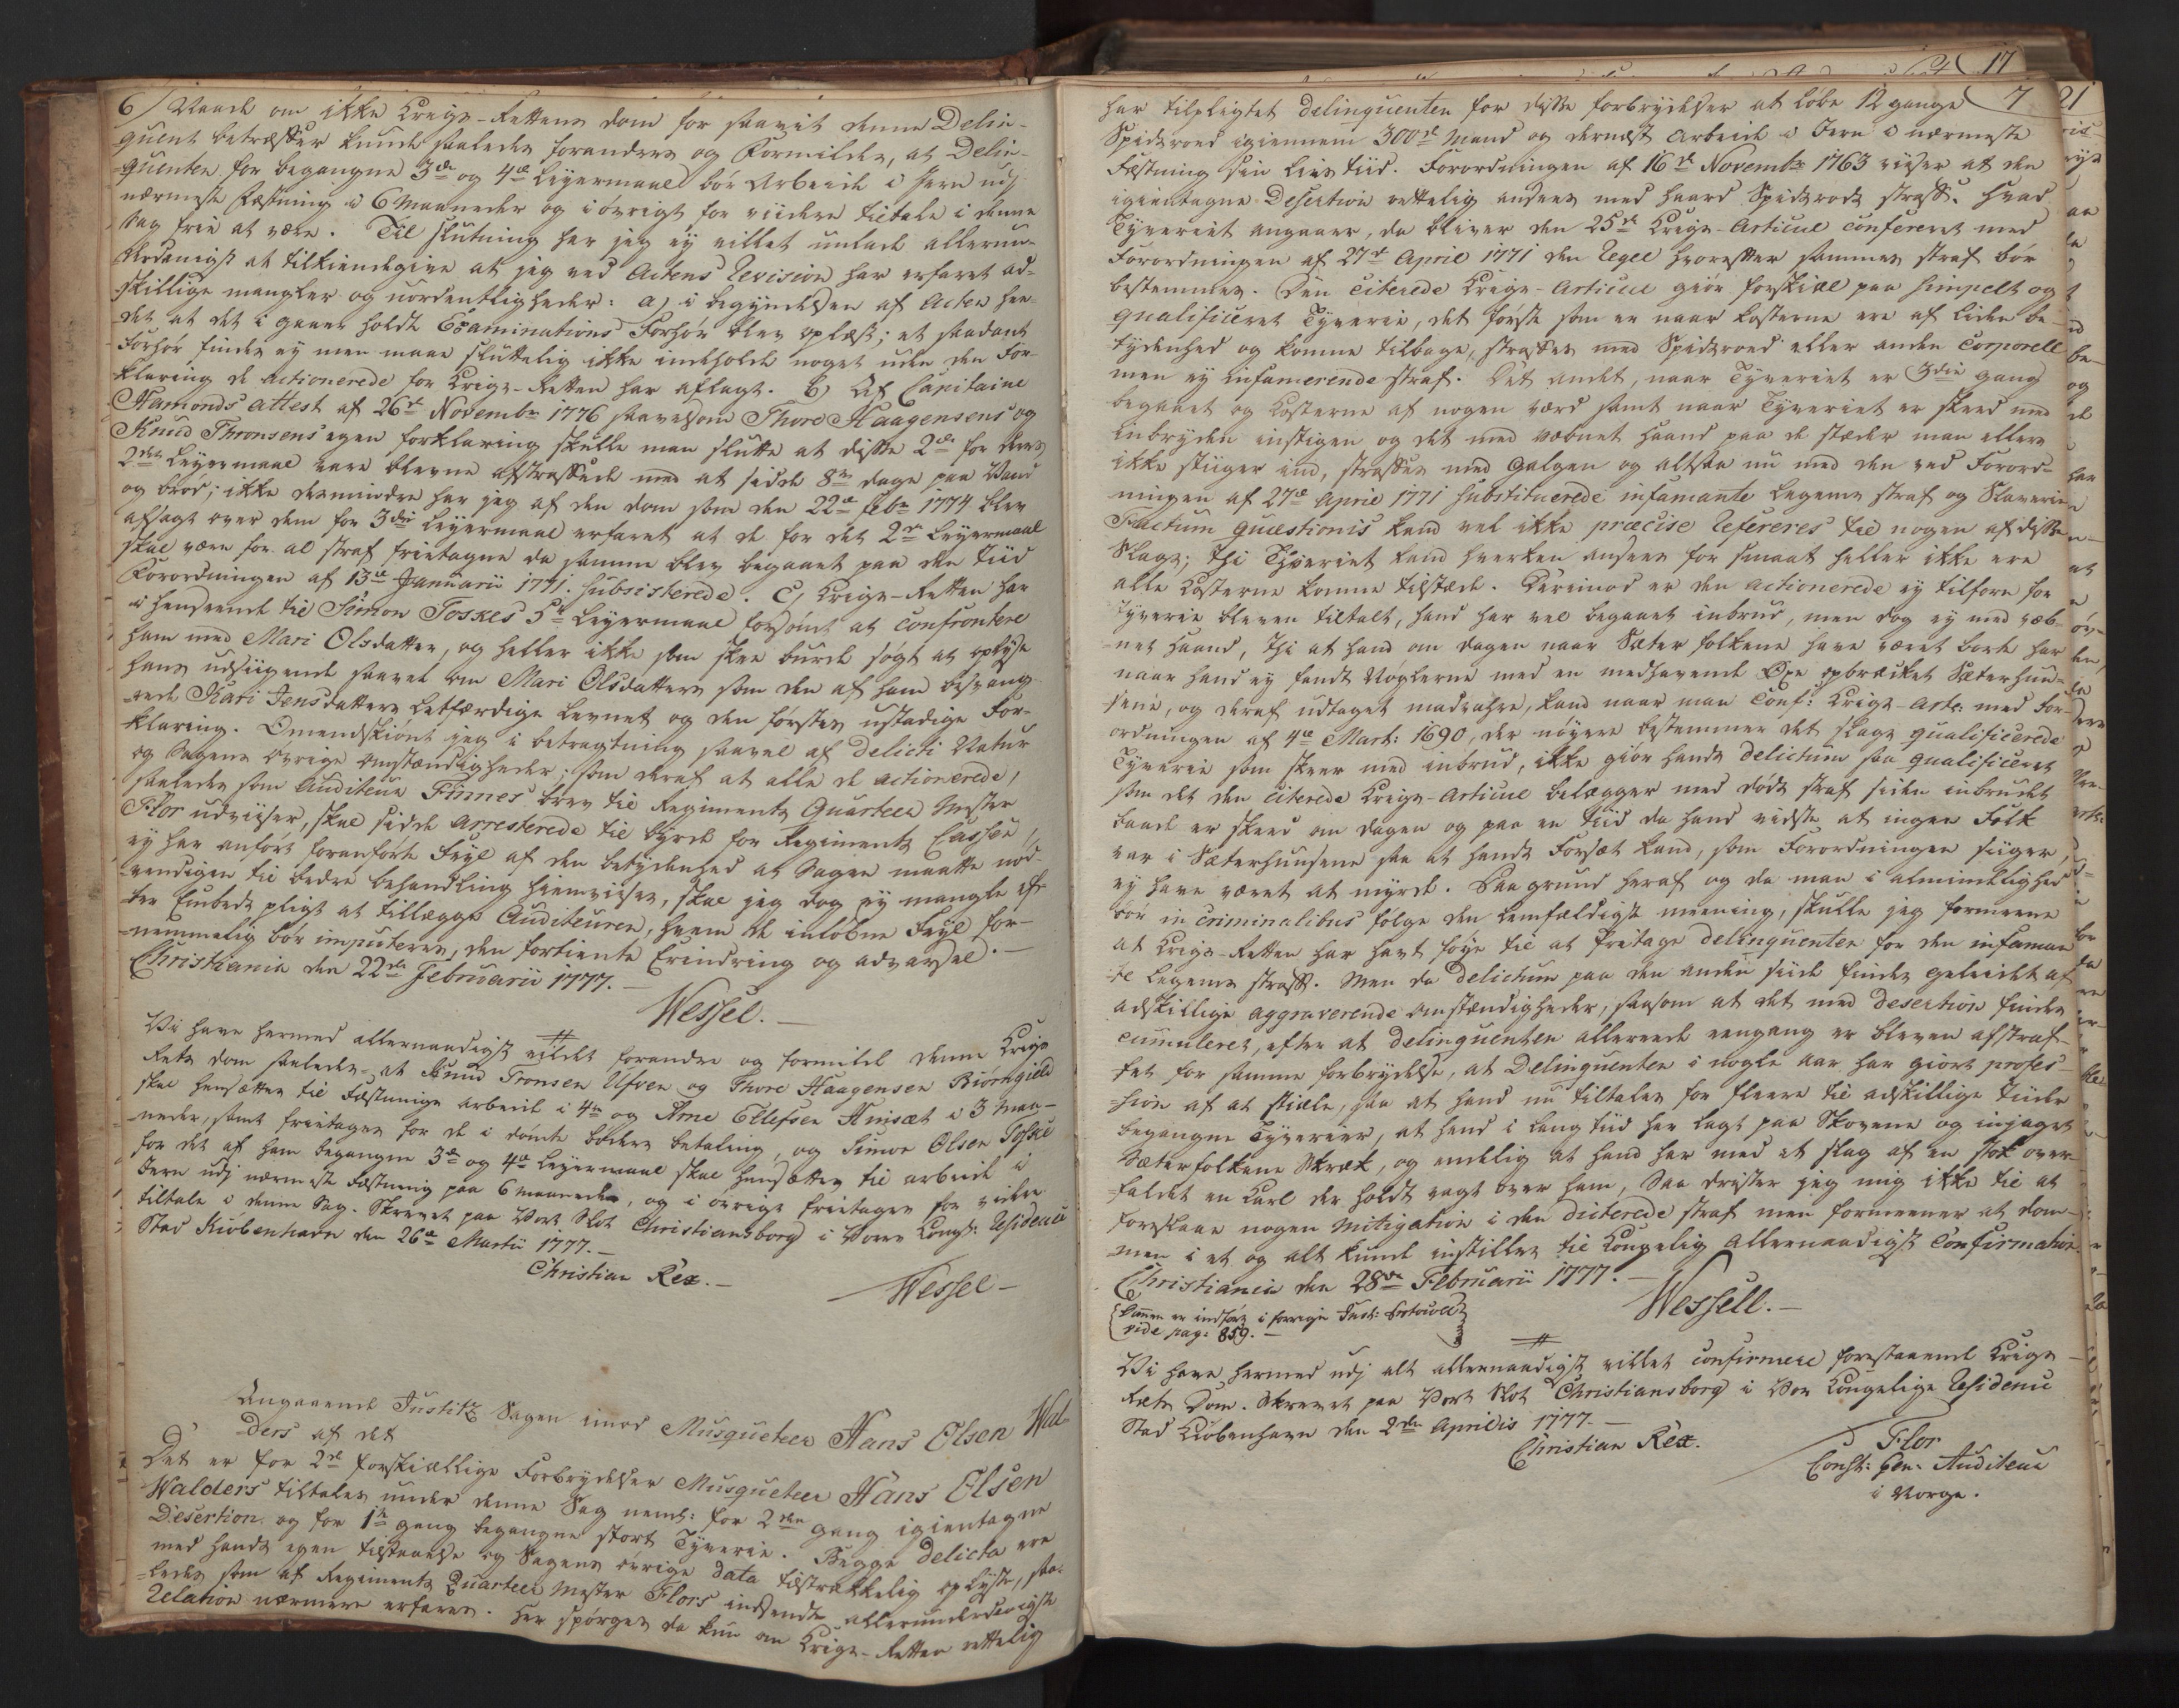 6/ Naade om ikke Krigs-Rettens dom for saavit denne Delin-
quent betræffer kunde saaledes forandres og Formildes, at Delin-
quenten for begangne 3de og 4de Leyermaal bör Arbeide i Jern udj
nærmeste Fæstning i 6 Maaneder og i övrigt for viidere tiltale i denne
sag frie at være. Til slutning har jeg ey villet unlade allerun-
derdanigst at tilkiendegive at jeg ved Actens Revision har erfaret ad-
skillige mangler og uordentligheder: a) i begyndelsen af Acten hee-
der at det i gaar holdt Examinations Forhör blev oplæst; et saadant
Forhör findes ey men maae sluttelig ikke indeholde noget uden den For-
klaring de actionerede for Krigs-Retten har aflagt. b) Af Capitaine
Hamonds attest af 26de Novembr 1776 saavelsom Thore Haagensens og
Knud Thronsens egen forklaring skulle man slutte at disse 2de for deres
2det Leyermaal vare blevne afstraffede med at sidde 8te dage paa Vand
og bröd; ikke desmindre har jeg af den dom som den 22de febr 1774 blev
afsagt over dem for 3die Leyermaal erfaret at de for det 2det Leyermaal
skal være for al straf frietagne da samme blev begaaet paa den tiid
Forordningen af 13de Januarii 1771. subsisterede. C, Krigs-Retten har
i henseende til Simon Toskes 5te Leyermaal forsömt at confrontere
ham med Mari Olsdatter, og heller ikke som skee burde sögt at oplyse
hans udsiigende saavel om Mari Olsdatters som den af ham besvang-
rede Kari Jensdatters Letfærdige Levnet og den förstes ustadige For-
klaring. Omendskiönt jeg i betragtning saavel af Delicti Natur
og Sagens övrige omstændigheder; som deraf at alle de actionerede,
saaledes som Auditeur Finnes brev til Regiments Quarteer Mester
Flor udviiser, skal sidde arresterede til byrde for Regiments Cassen,
ey har anfört foranförte Feyl af den betydenhed at Sagen maatte nöd-
vendigen til bedre behandling hiemvises, skal jeg dog ey mangle ef-
ter Embeds pligt at tillægge Auditeuren, hvem de inlöbne Feyl for-
nemmelig bör imputeres, den fortiente Erindring og advarsel.-
Christiania den 22de Februarii 1777.-
Wessel.-
Vi have hermed allernaadigst villet forandre og formilde denne Krigs
Rets dom saaledes at Knud Tronsen Ufsen og Thore Haagensen Biörngield
skal hensættes til Fæstnings arbeid i 4re og Arne Ellefsen Huusæt i 3 maa-
neder, samt frietages for de i dömte böders betaling, og Simon Olsen Toske
for det af ham begangne 3de og 4de Leyermaal skal hensættes til arbeide i
Jern udj nærmeste Fæstning paa 6 maaneder, og i övrigt frietages for videre
tiltale i denne Sag. Skrevet paa Vort Slot Christiansborg i Vores Kongl: Residence
Stad Kiöbenhavn den 26de Martii 1777.-
Christian Rex.-
Wessel-
Angaaende Justitz Sagen imod Musqueteer Hans Olsen Wal-
ders af det
Det er for 2de forskiællige Forbrydelser Musqueteer Hans Olsen
Walders tiltales under denne Sag neml: for 2den gang igientagne
Desertion og for 1te gang begangne stort Tyverie. Begge Delicta ere
med hands egen tilstaaelse og Sagens övrige data tilstrækkelig oplyste, saa-
ledes som af Regiments Quarteer Mester Flors indsendte allerunderdanigste
Relation nærmere erfares. Her spörges da kun om Krigs-Retten rettelig
har tilpligtet Delinquenten for disse forbrydelser at löbe 12 gange
Spidsroed igiennem 300de Mand og dernæst Arbeide i Jern i nærmeste
Fæstning sin Liivstiid. Forordningen af 16de Novembr 1763 viiser at den
igientagne Desertion rettelig ansees med haard Spidsrods straff. Hvad
Tyveriet angaaer, da bliver den 25de Krigs-Articul confereret med
Forordningen af 27de April 1771 den Regel hvorefter sammes straf bör
bestemmes. Den Citerede Krigs-Articul giör forskiæl paa simpelt og
qualificeret Tyverie, det förste som er naar kosterne ere af liden be-
tydenhed og komme tilbage, straffes med Spidsroed eller anden Corporell
men ey infamerende straf. Det andet, naar Tyveriet er 3die gang
begaaet og kosterne af nogen værd samt naar Tyveriet er skeed med
inbryden instigen og det med væbnet haand paa de stæder man ellers
ikke stiiger ind, straffes med Galgen og altsaa nu med den ved Forord-
ningen af 27de April 1771 substituerede infamante Legems straf og Slaverie
Factum quæstionis kand vel ikke præcise Refereres til nogen af disse
Slags; thi Tyveriet kand hverken ansees for smaat heller ikke ere
alle kosterne komne tilstæde. Derimod er den actionerede ey tilforn for
Tyverie bleven tiltalt, hand har vel begaaet inbrud, men dog ey med væb-
net haand, thi at hand om dagen naar Sæter folkene have været borte har
naar hand ey fandt Nöglerne med en medhavende Öxe opbrækket Sæterhuu-
sene, og deraf udtaget madvahre, kand naar man Conf: Krigs-Art: med For-
ordningen af 4de Mart: 1690, der nöyere bestemmer det slags qualificerede
Tyverie som skeer med inbrud, ikke giöre hands delictum saa qualificeret
som det den Citerede Krigs-Articul belægger med döds straf siden inbrudet
baade er skeed om dagen og paa en tiid da hand vidste at ingen Folk
var i Sæterhuusene saa at hands Forsæt kand, som Forordningen siiger,
ey have været at myrde. Paa grund heraf og da man i almindelighed
bör in criminalibus fölge den lemfældigste meening, skulle jeg formeene
at Krigs-Retten har havt föye til at fritage delinquenten for den infaman
te Legems straff. Men da delictum paa den anden siide findes geleidet af
adskillige aggraverende omstændigheder, saasom at det med Desertion findes
cumuleret, efter at delinquenten allereede eengang er bleven afstraf-
fet for samme forbrydelse, at Delinquenten i nogle aar har giort profes-
sion af at stiæle, saa at hand nu tiltales for fleere til adskillige tiider
begangne Tyverier, at hand i lang tiid har lagt paa Skovene og injaget
Sæterfolkene Skræk, og endelig at hand har med et slag af en stok over-
faldet en Karl der holdt vagt over ham, Saa drister jeg mig ikke til at
foreslaae nogen Mitigation i den dicterede straf men formeener at dom-
men i et og alt kunde instilles til Kongelig allernaadigst Confirmation.
Christiania den 28de Februarii 1777.-
Wessell.-
Dommen er indfört i forrige Just: Protocoll
vide pag: 859.-
Vi have hermed udj alt allernaadigst villet confirmere forestaaende Krigs-
Rets Dom. Skrevet paa Vort Slot Christiansborg i Vor Kongelige Residence
Stad Kiöbenhavn den 2den Aprilis 1777.-
Christian Rex.
Flor
Const: Gen: Auditeur
i Norge.
7
17
21